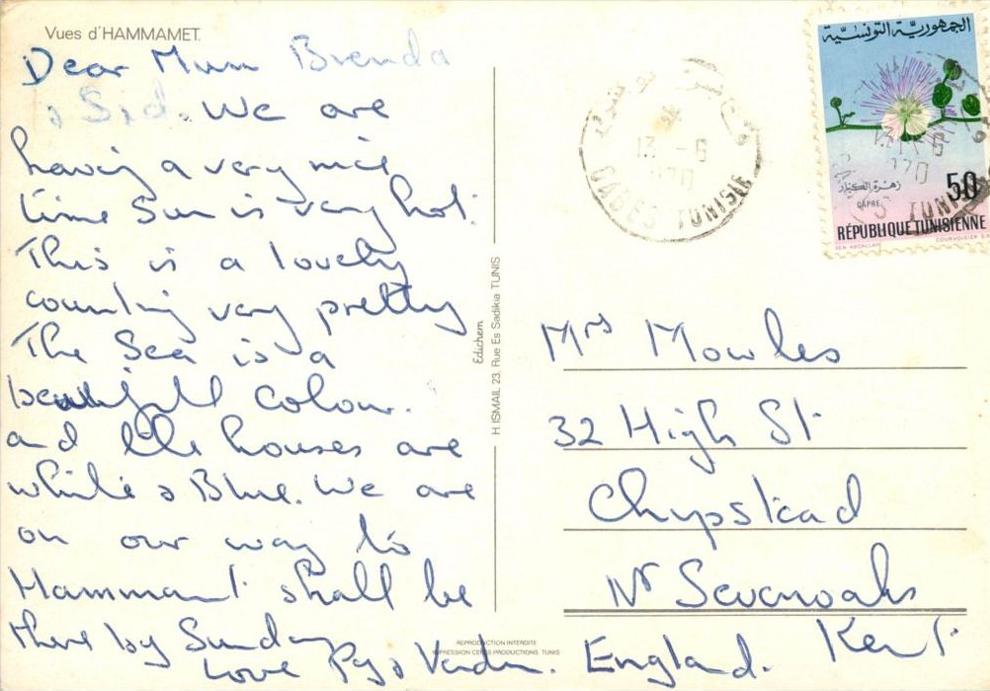 Vues d'HAMMAMET.
Dear Mum Brenda
& Sid. We are
having a very nice
time Sun is very hot.
This is a lovely
country very pretty
The Sea is a
beautifull colour.
and the houses are
white & Blue. We are
on our way to
Hammamt shall be
there by Sunday
Love
Edichem
H. ISMAIL 23, Rue Es Sadikia TUNIS
REPRODUCTION INTERDITE
IMPRESSION CERES PRODUCTIONS TUNIS
GABES TUNISIE
13 - 6
الجمهورية التونسية
زهرة الكبار
CAPRE
50
RÉPUBLIQUE TUNISIENNE
Mrs Mowles
32 High St
Chypstead
Nr Sevenoaks
England. Kent.